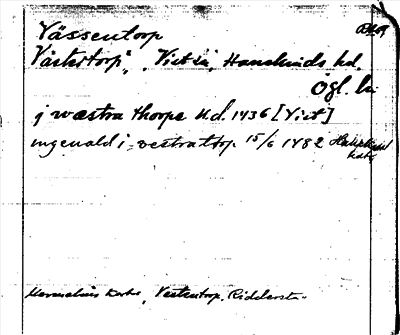 Vässentorp
Västertorp, Vist sn, Hanekinds hd.
Ögl. län
j wæstra thorpe U.d. 1436 [Vist]
ingenald i vestratorp 15/6 1482
Hermelins karta, Vestentorp, Ridderstad